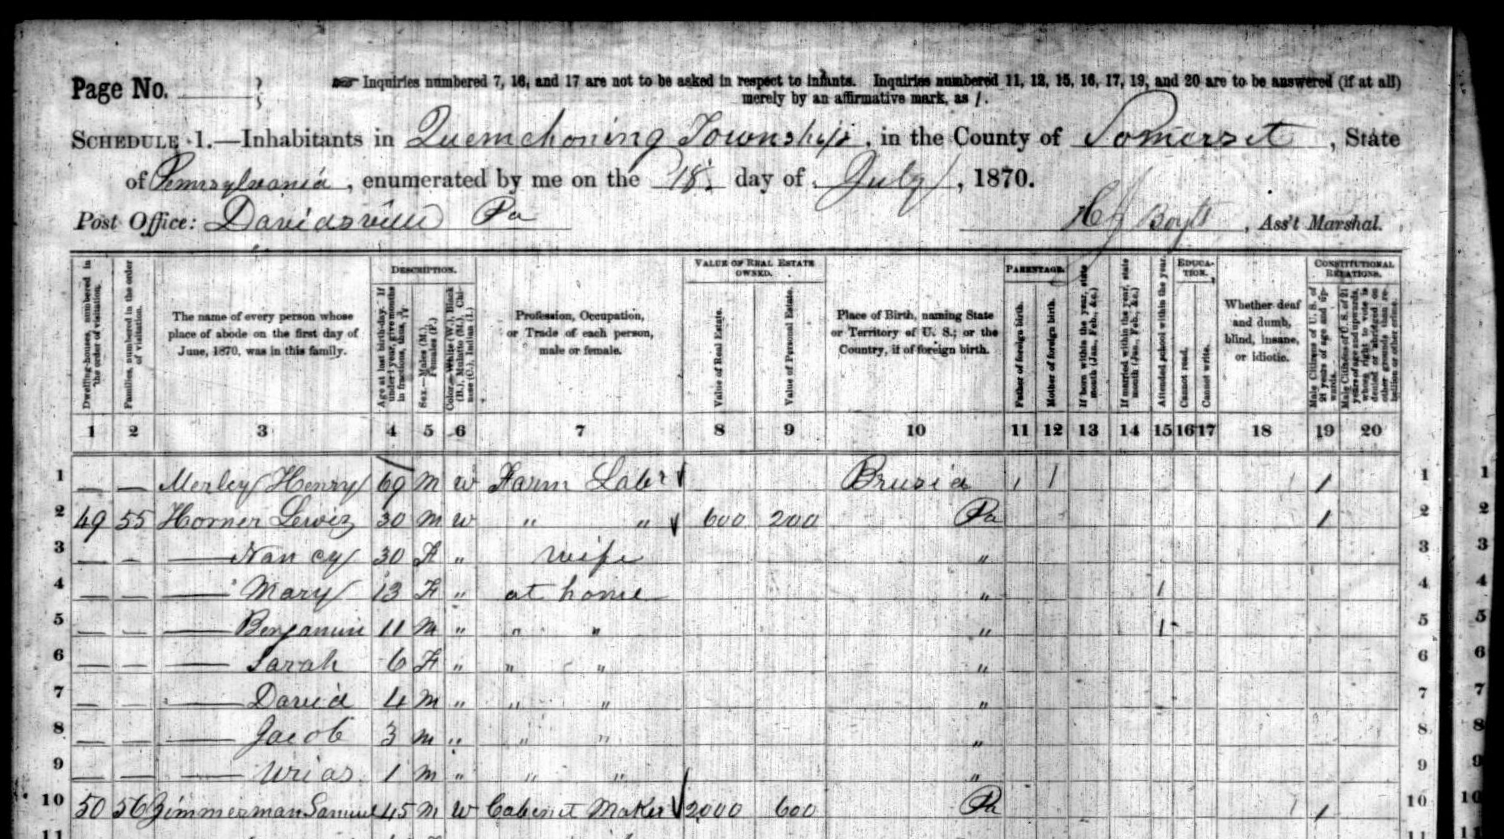 Page No.
☞ Inquiries numbered 7, 16, and 17 are not to be asked in respect to infants. Inquiries numbered 11, 12, 15, 16, 17, 19, and 20 are to be answered (if at all)
merely by an affirmative mark, as /.
SCHEDULE 1.—Inhabitants in Quemahoning Township, in the County of Somerset, State
of Pennsylvania, enumerated by me on the 18. day of July, 1870.
Post Office: Davidsville Pa , Ass't Marshal.
Dwelling-houses, numbered in the order of visitation.
Families, numbered in the order of visitation.
The name of every person whose place of abode on the first day of June, 1870, was in this family.
DESCRIPTION.
Age at last birth-day. If under 1 year, give months in fractions, thus, 3/12
Sex.—Males (M.), Females (F.)
Color.—White (W.), Black (B.), Mulatto (M.), Chinese (C.), Indian (I.)
Profession, Occupation, or Trade of each person, male or female.
VALUE OF REAL ESTATE OWNED.
Value of Real Estate.
Value of Personal Estate.
Place of Birth, naming State or Territory of U. S.; or the Country, if of foreign birth.
PARENTAGE.
Father of foreign birth.
Mother of foreign birth.
If born within the year, state month (Jan., Feb., &c.)
If married within the year, state month (Jan., Feb., &c.)
Attended school within the year.
EDUCATION.
Cannot read.
Cannot write.
Whether deaf and dumb, blind, insane, or idiotic.
CONSTITUTIONAL RELATIONS.
Male Citizens of U. S. of 21 years of age and upwards.
Male Citizens of U. S. of 21 years of age and upwards, whose right to vote is denied or abridged on other grounds than rebellion or other crime.
1 2 3 4 5 6 7 8 9 10 11 12 13 14 15 16 17 18 19 20
1 — — Henry 69 M W Farm Labr / / / 1 1
2 49 55 Horner Lewis 30 M W " " 600 200 Pa / 2 2
3 — — — Nancy 30 F " wife " 3 3
4 — — — Mary 13 F " at home " / 4 4
5 — — — Benjamin 11 M " " " " / 5 5
6 — — — Sarah 6 F " " " " 6 6
7 — — — David 4 M " " " " 7 7
8 — — — Jacob 3 M " " " " 8 8
9 — — — Urias 1 M " " " " 9 9
10 50 56 Zimmerman Samuel 45 M W Cabinet Maker 2000 600 Pa / 10 10
11